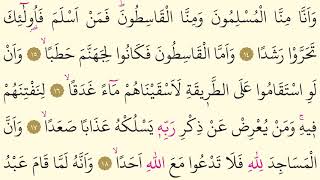 وَاَنَّا مِنَّا الْمُسْلِمُونَ وَمِنَّا الْقَاسِطُونَ ۜ فَمَنْ اَسْلَمَ فَاُو۬لٰٓئِكَ
تَحَرَّوْا رَشَدًا ﴿١٤﴾ وَاَمَّا الْقَاسِطُونَ فَكَانُوا لِجَهَنَّمَ حَطَبًا ۙ ﴿١٥﴾ وَاَنْ
لَوِ اسْتَقَامُوا عَلَى الطَّر۪يقَةِ لَاَسْقَيْنَاهُمْ مَٓاءً غَدَقًا ۙ ﴿١٦﴾ لِنَفْتِنَهُمْ
ف۪يهِ ۜ وَمَنْ يُعْرِضْ عَنْ ذِكْرِ رَبِّه۪ يَسْلُكْهُ عَذَابًا صَعَدًا ۙ ﴿١٧﴾ وَاَنَّ
الْمَسَاجِدَ لِلّٰهِ فَلَا تَدْعُوا مَعَ اللّٰهِ اَحَدًا ۙ ﴿١٨﴾ وَاَنَّهُ لَمَّا قَامَ عَبْدُ